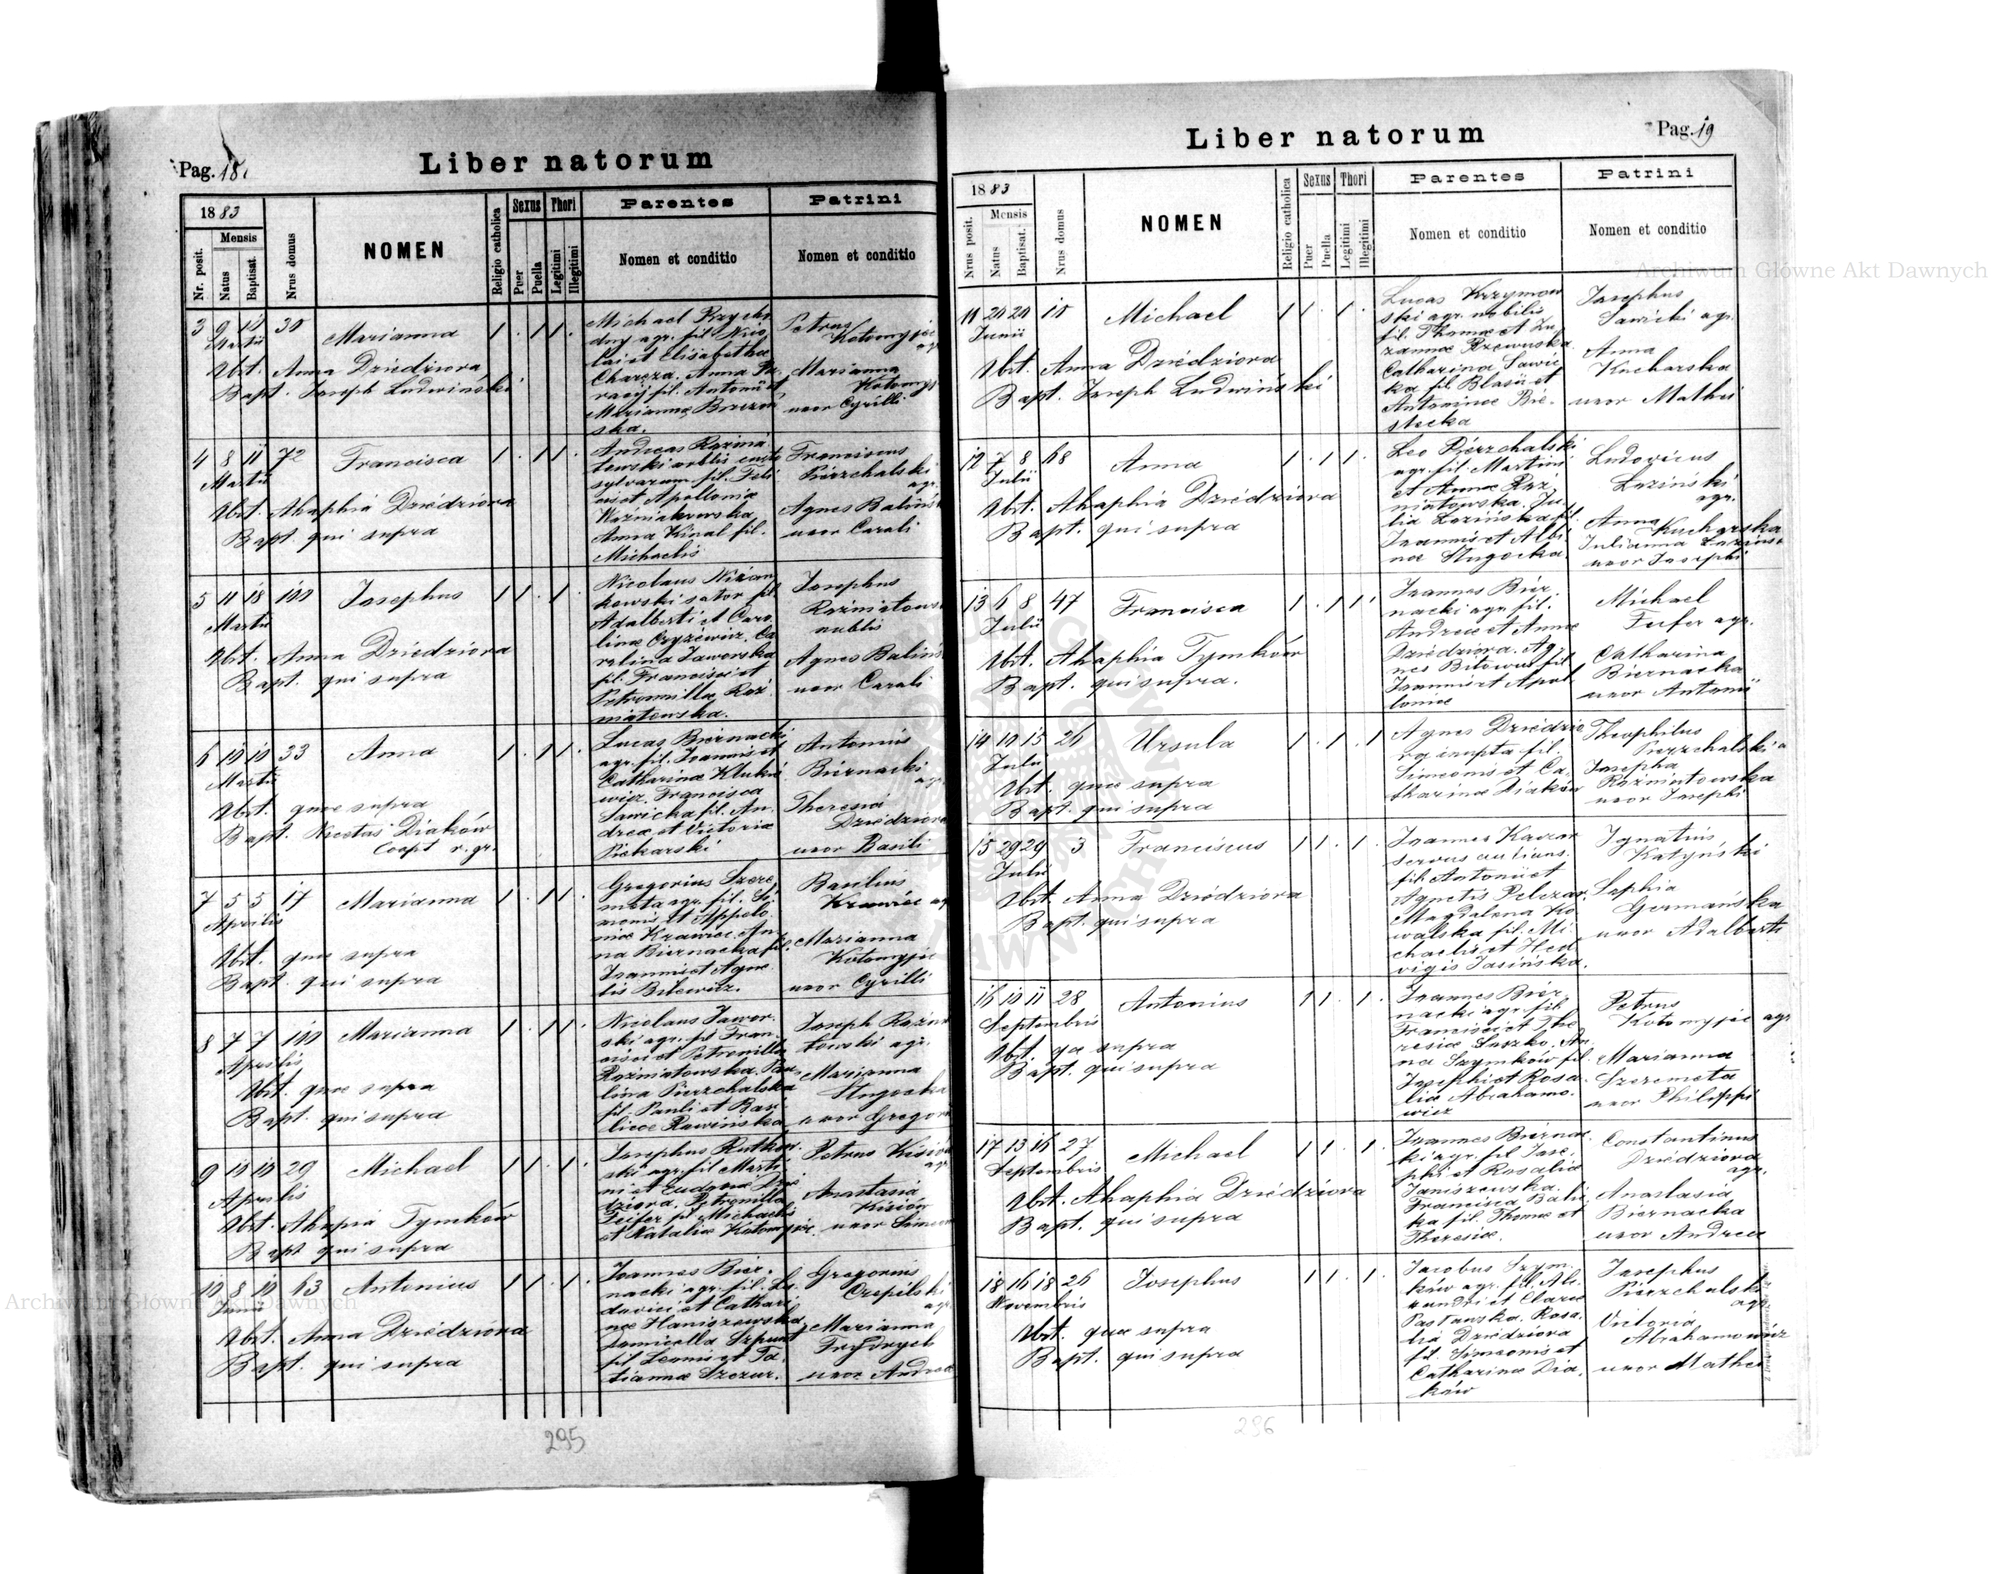 Pag. 18.
Liber natorum
1883
Nr. posit.
Mensis
Natus
Baptisat.
Nrus domus
NOMEN
Religio catholica
Sexus
Puer
Puella
Thori
Legitimi
Illegitimi
Parentes
Nomen et conditio
Patrini
Nomen et conditio
3 9 10 30 Marianna 1 . 1 1 .
Martii
Obst. Anna Dziedziora
Bapt. Joseph Ludwiński
Michael
agr. fil. Nico
lai et Elisabethae
Charęza. Anna
fil. Antonii et
Mariannae
ska.
Petrus
Kotomyjec
agr
Marianna
uxor Cyrilli
4 8 11 72 Francisca 1 . 1 1 .
Martii
Obst. Ahaphia Dziedziora
Bapt. qui supra
Andreas Roznia
towski nobilis
sylvarum fil. Feli
cis et Apolloniae
Woźniakowska
Anna Kinal fil.
Michaelis
Franciscus
Pierzchalski
agr.
Agnes
uxor Caroli
5 11 18 100 Josephus 1 1 . 1 .
Martii
Obst. Anna Dziedziora
Bapt. qui supra
Nicolaus
kowski sator fil.
Adalberti et Caro
linae Ca
rolina Jaworska
fil. Francisci et
Petronilla Roż
niatowska.
Josephus
Rożniatows
nobilis
Agnes
uxor Caroli
6 10 10 33 Anna 1 . 1 1 .
Martii
Obst. quae supra
Bapt. Nicetas Diaków
Coop. r. gr.
Lucas Biernacki
agr. fil. Joannis et
Catharinae Klukie
wicz. Francisca
Sawicka fil. An
dreae et Victoriae
Piekarski
Antonius
Biernacki
agr
Theresia
Dziedziora
uxor Basili
7 5 5 17 Marianna 1 . 1 1 .
Aprilis
Obst. quae supra
Bapt. qui supra
Gregorius Szere
meta agr. fil. Si
monis et Appolo
niae Krawiec. An
na Biernacka fil.
Joannis et Agne
tis Bilewicz.
Basilius
Krawiec ag
Marianna
Kotomyjec
uxor Cyrilli
8 7 7 100 Marianna 1 . 1 1 .
Aprilis
Obst. quae supra
Bapt. qui supra
Nicolaus Jawor
ski agr. fil Fran
cisci et Petronilla
Rożniatowska. Pau
lina Pierzchalska
fil. Pauli et Basi
liae Rawińska
Joseph Rożnia
towski agr.
Marianna
uxor Gregorii
9 10 10 29 Michael 1 1 . 1 .
Aprilis
Obst. Ahapia Tymków
Bapt qui supra
Josephus Rutkow
ski agr. fil Marti
ni et Eudoxiae Dzie
dziora. Petronilla
Feifer fil. Michaelis
et Nataliae Kotomyjec.
Petrus Kisiów
agr
Anastasia
Kisiów
uxor Simeon
10 8 10 63 Antonius 1 1 . 1 .
Junii
Obst. Anna Dziedziora
Bapt. qui supra
Joannes Bier
nacki agr. fil. Lu
dovici et Cathari
nae Haniszewska
Domicella Szpunt
fil Leonis et Ta
tianna Szczur.
Gregorius
Czepilski
agr.
Marianna
Frydrych
uxor Andreae
295
Liber natorum
Pag. 19
1883
Nrus posit.
Mensis
Natus
Baptisat.
Nrus domus
NOMEN
Religio catholica
Sexus
Puer
Puella
Thori
Legitimi
Illegitimi
Parentes
Nomen et conditio
Patrini
Nomen et conditio
11 20 20 10 Michael 1 1 . 1 .
Junii
Obst. Anna Dziedziora
Bapt. Joseph Ludwiński
Lucas Krzymow
ski agr. nobilis
fil. Thomae et Zu
zannae Rzewuska
Catharina Sawic
ka fil. Blasii et
Antoninae Bie
stecka
Josephus
Sawicki agr.
Anna
Kucharska
uxor Mathei
12 7 8 68 Anna 1 . 1 1 .
Julii
Obst. Ahaphia Dziedziora
Bapt. qui supra
Leo Pierzchalski
agr. fil. Martini
et Annae Roż
niatowska. Ju
lia Lozińska fil.
Joannis et Albi
nae
Ludovicus
Loziński
agr.
Anna Kucharska
Julianna
uxor Josephi
13 6 8 47 Francisca 1 . 1 1 .
Julii
Obst. Ahaphia Tymków
Bapt. qui supra.
Joannes Bier
nacki agr. fil.
Andreae et Annae
Dziedziora. Ag
nes fil.
Joannis et Apol
loniae
Michael
Feifer agr.
Catharina
Biernacka
uxor Antonii
14 10 13 26 Ursula 1 . 1 . 1
Julii
Obst. quae supra
Bapt. qui supra
Agnes Dziedzio
ra inupta fil.
Simeonis et Ca
tharinae Diaków
Theophilus
Pierzchalski a
Josepha
Rożniatowska
uxor Josephi
15 29 29 3 Franciscus 1 1 . 1 .
Julii
Obst Anna Dziedziora
Bapt. qui supra
Joannes
servus aulicus.
fil. Antonii et
Agnetis Pelczar
Magdalena Ko
walska fil. Mi
chaelis et Hed
vigis Jasińska.
Ignatius
Katyński
Sophia
Germańska
uxor Adalberti
16 10 11 28 Antonius 1 1 . 1 .
Septembris
Obst. quae supra
Bapt. qui supra
Joannes Bier
nacki agr. fil
Francisci et The
resiae Laszko. An
na Szymków fil.
Josephi et Rosa
liae Abrahamo
wicz
Petrus
Kotomyjec agr
Marianna
Szeremeta
uxor Philippi
17 13 16 27 Michael 1 1 . 1 .
Septembris
Obst. Ahaphia Dziedziora
Bapt. qui supra
Joannes Bierna
cki agr. fil Jose
phi et Rosaliae
Janiszewska.
Francisca
ka fil. Thomae et
Theresiae.
Constantinus
Dziedziora
agr.
Anastasia
Biernacka
uxor Andreae
18 16 18 26 Josephus 1 1 . 1 .
Novembris
Obst. quae supra
Bapt. qui supra
Jacobus Szym
ków agr. fil. Ale
xandri et Clarae
Rosa
lia Dziedziora
fil. Simeonis et
Catharinae Dia
ków
Josephus
Pierzchalski
agr.
Victoria
Abrahamowicz
uxor Mathei
296
Archiwum Główne Akt Dawnych
Archiwum Główne Akt Dawnych